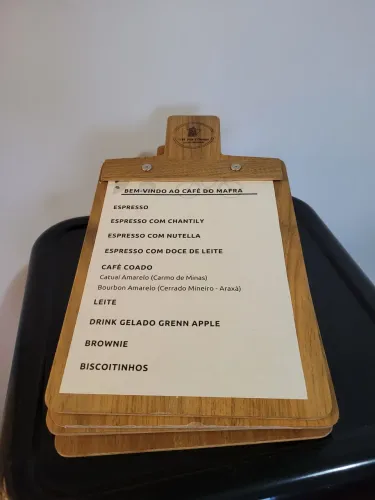 BEM-VINDO AO CAFÉ DO MAFRA
ESPRESSO
ESPRESSO COM CHANTILY
ESPRESSO COM NUTELLA
ESPRESSO COM DOCE DE LEITE
CAFÉ COADO
Catuaí Amarelo (Carmo de Minas)
Bourbon Amarelo (Cerrado Mineiro - Araxá)
LEITE
DRINK GELADO GRENN APPLE
BROWNIE
BISCOITINHOS